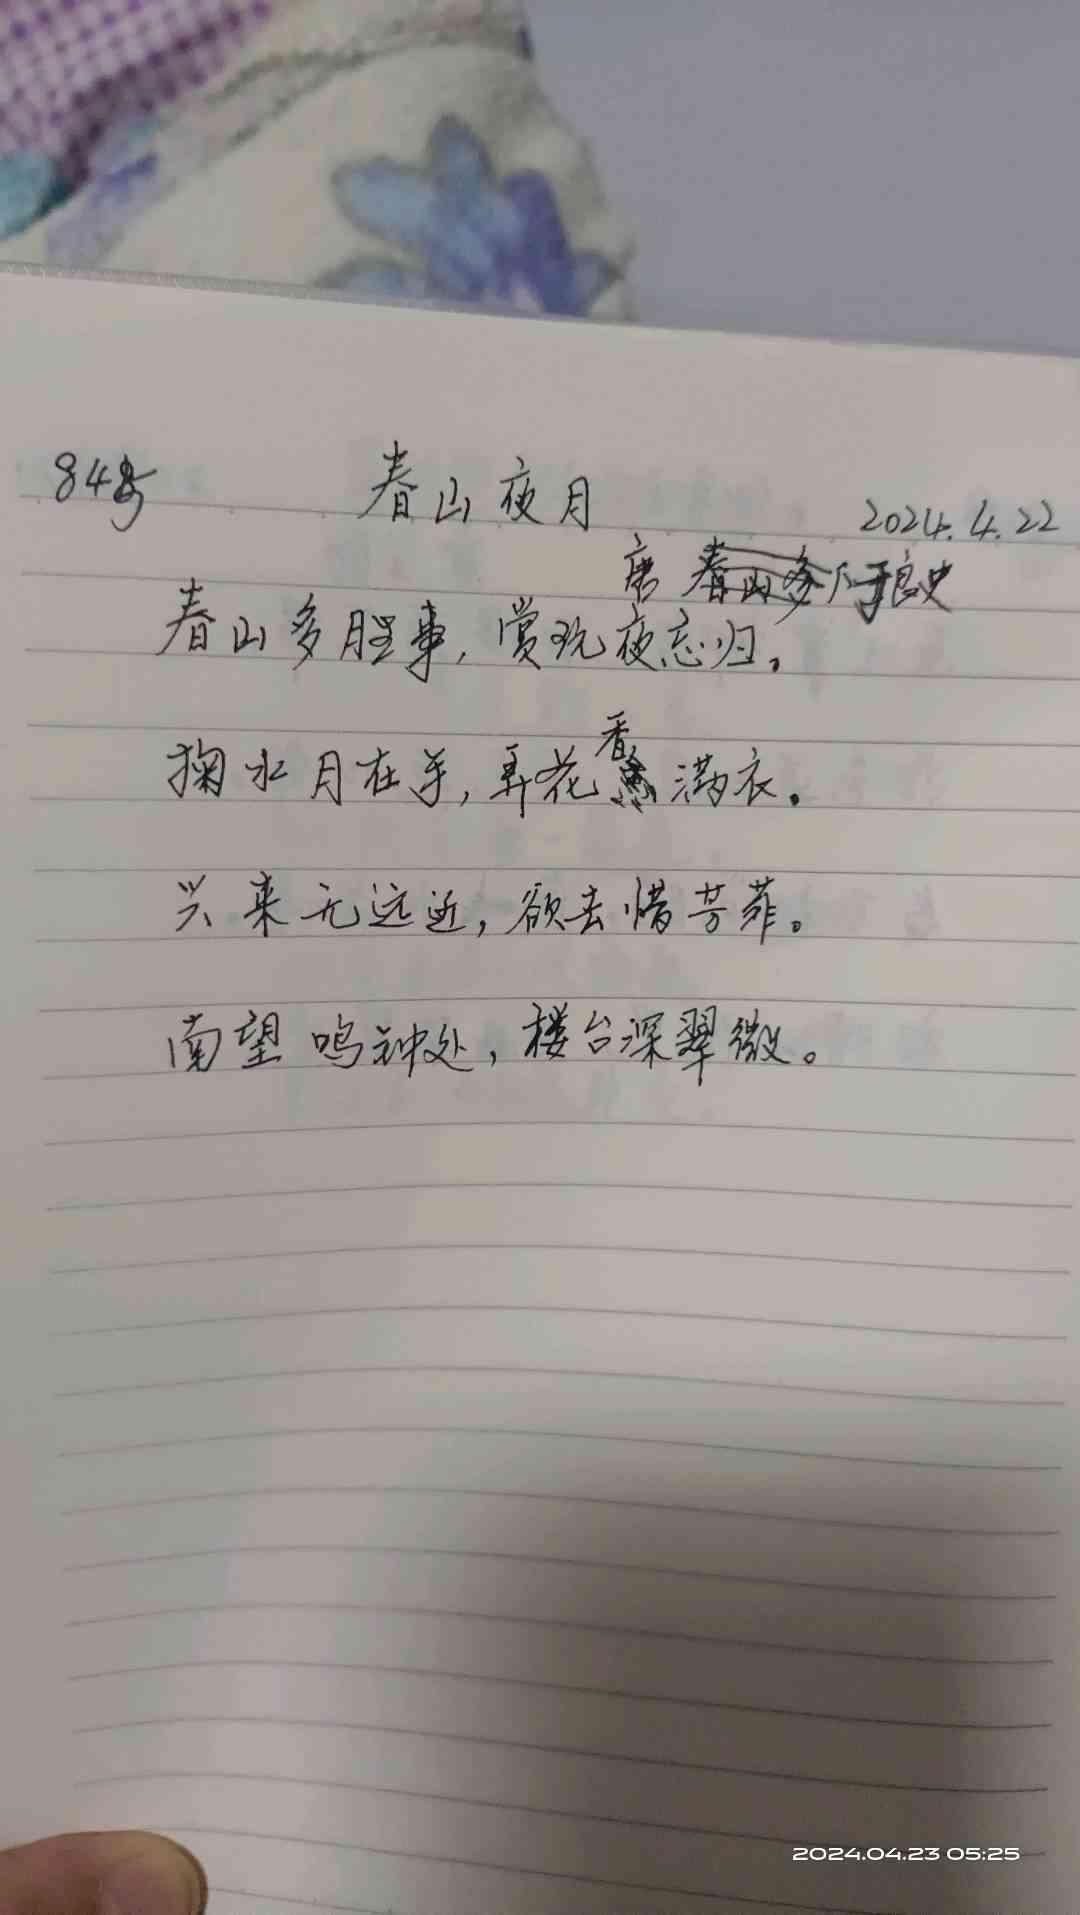 84号 春山夜月 2024.4.22
唐 于良史
春山多胜事,赏玩夜忘归。
掬水月在手,弄花香满衣。
兴来无远近,欲去惜芳菲。
南望鸣钟处,楼台深翠微。
2024.04.23 05:25